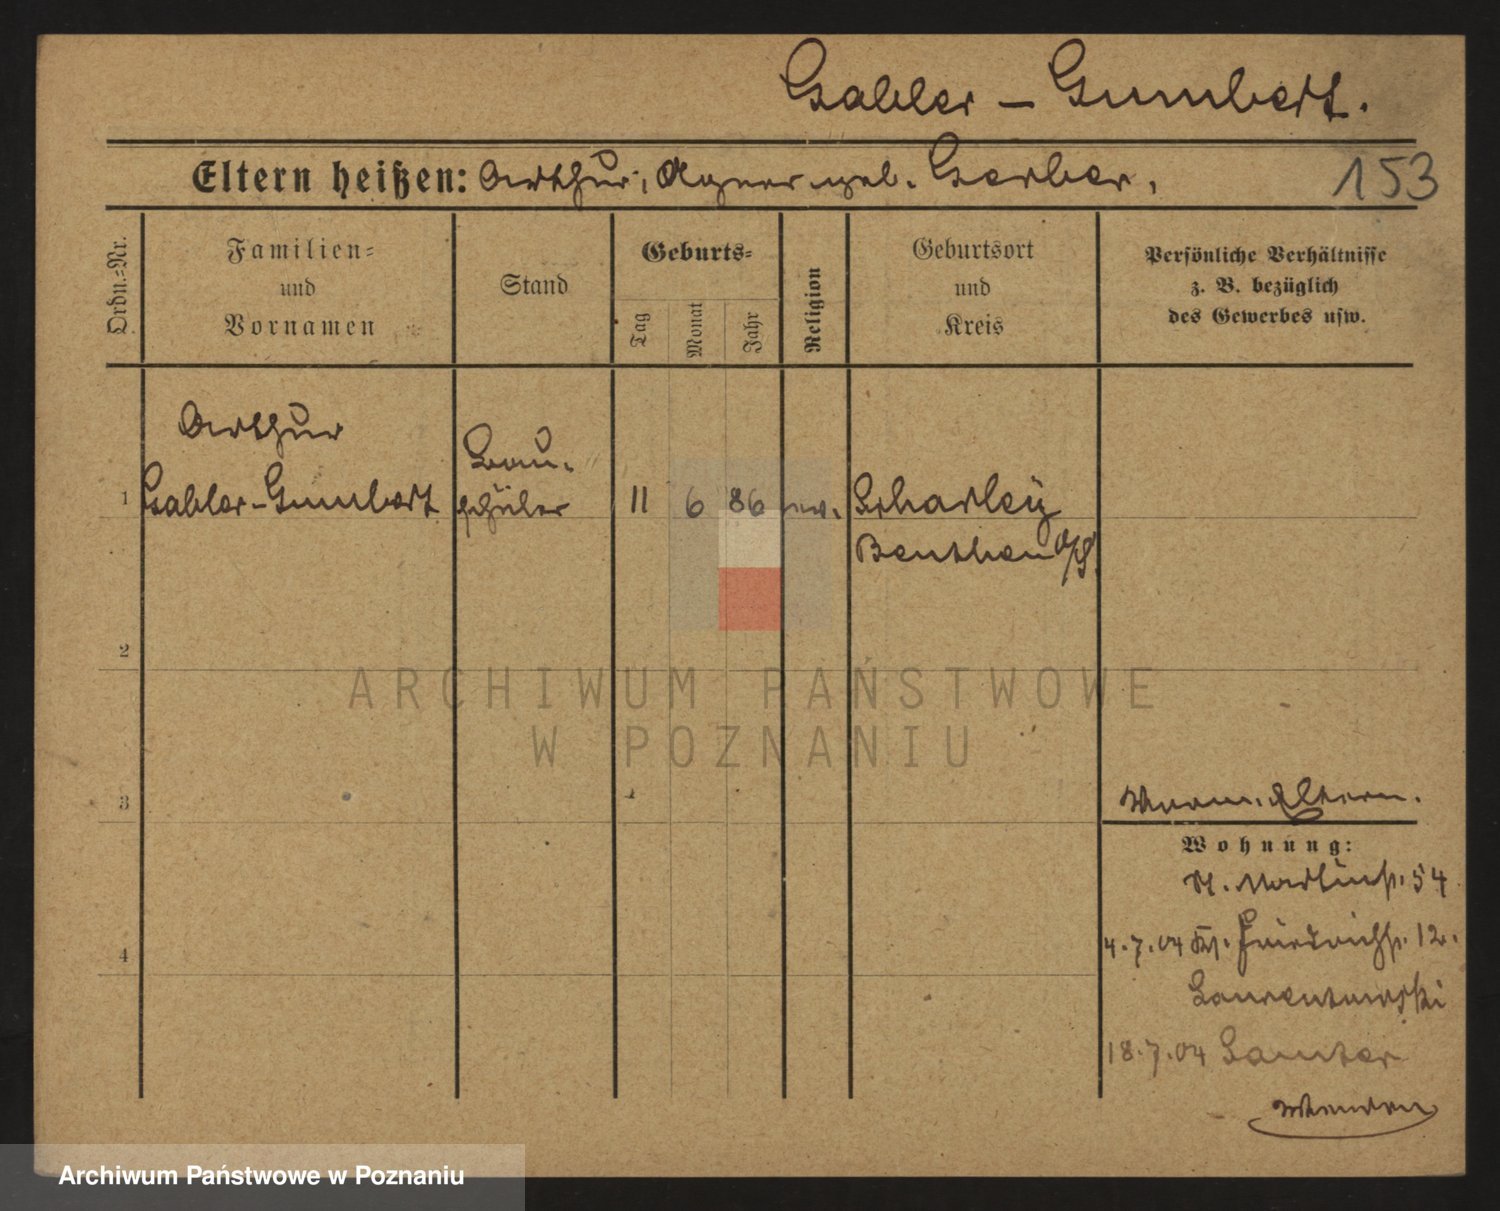 Gabler – Gumbert.
Eltern heißen: Arthur, Agnes geb. Gerber, 153
Ordn.=Nr.
Familien=
und
Vornamen
Stand
Geburts=
Tag
Monat
Jahr
Religion
Geburtsort
und
Kreis
Persönliche Verhältnisse
z. B. bezüglich
des Gewerbes usw.
Arthur
Bau-
1 Gabler-Gumbert schüler 11 6 86 ev. Scharley
Beuthen O/S.
2
ARCHIWUM PAŃSTWOWE
W POZNANIU
3
Eltern.
Wohnung:
St. Martinstr. 54
4
4.7.04 Friedrichstr. 12.
18.7.04 Samter
Archiwum Państwowe w Poznaniu